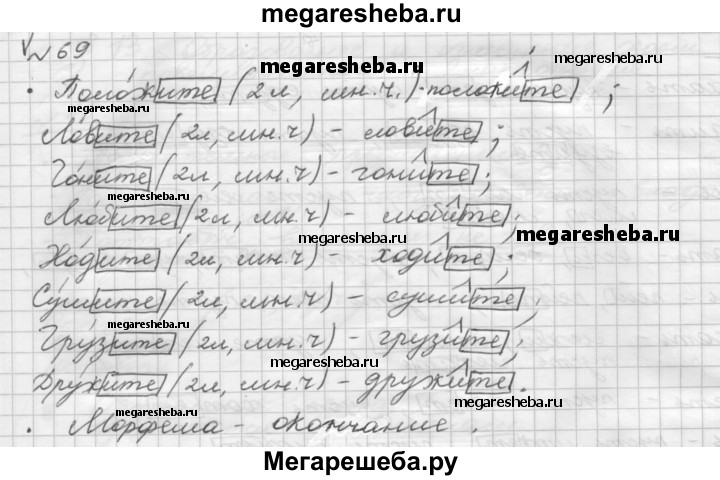 megaresheba.ru
№ 69
megaresheba.ru
· Положите (2л, мн.ч.) - положите ;
megaresheba.ru
Ловите (2л, мн.ч) - ловите ;
Гоните (2л, мн.ч) - гоните ;
megaresheba.ru
Любите (2л, мн.ч) - любите ;
megaresheba.ru
megaresheba.ru
Ходите (2л, мн.ч) - ходите ;
Сушите (2л, мн.ч) - сушите ;
megaresheba.ru
Грузите (2л, мн.ч) - грузите ;
Дружите (2л, мн.ч) - дружите .
megaresheba.ru
· Морфема - окончание .
Мегарешеба.ру